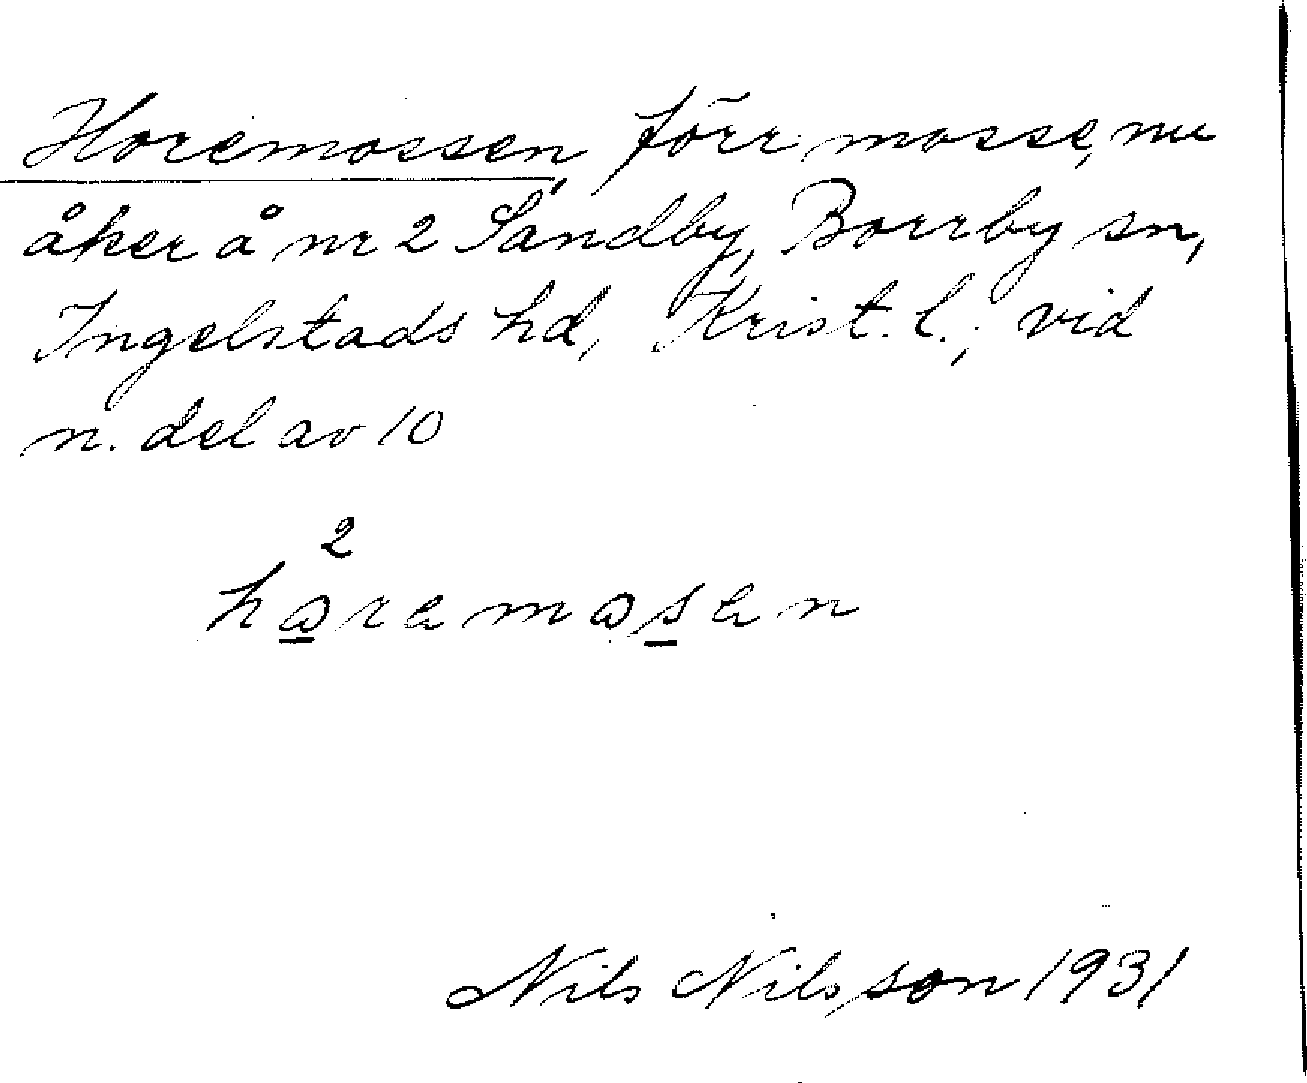 Horemossen, förr mosse, nu
åker å nr 2 Sandby, Borrby sn,
Ingelstads hd, Krist. l., vid
n. del av 10
2
hɷremɷsen
Nils Nilsson 1931